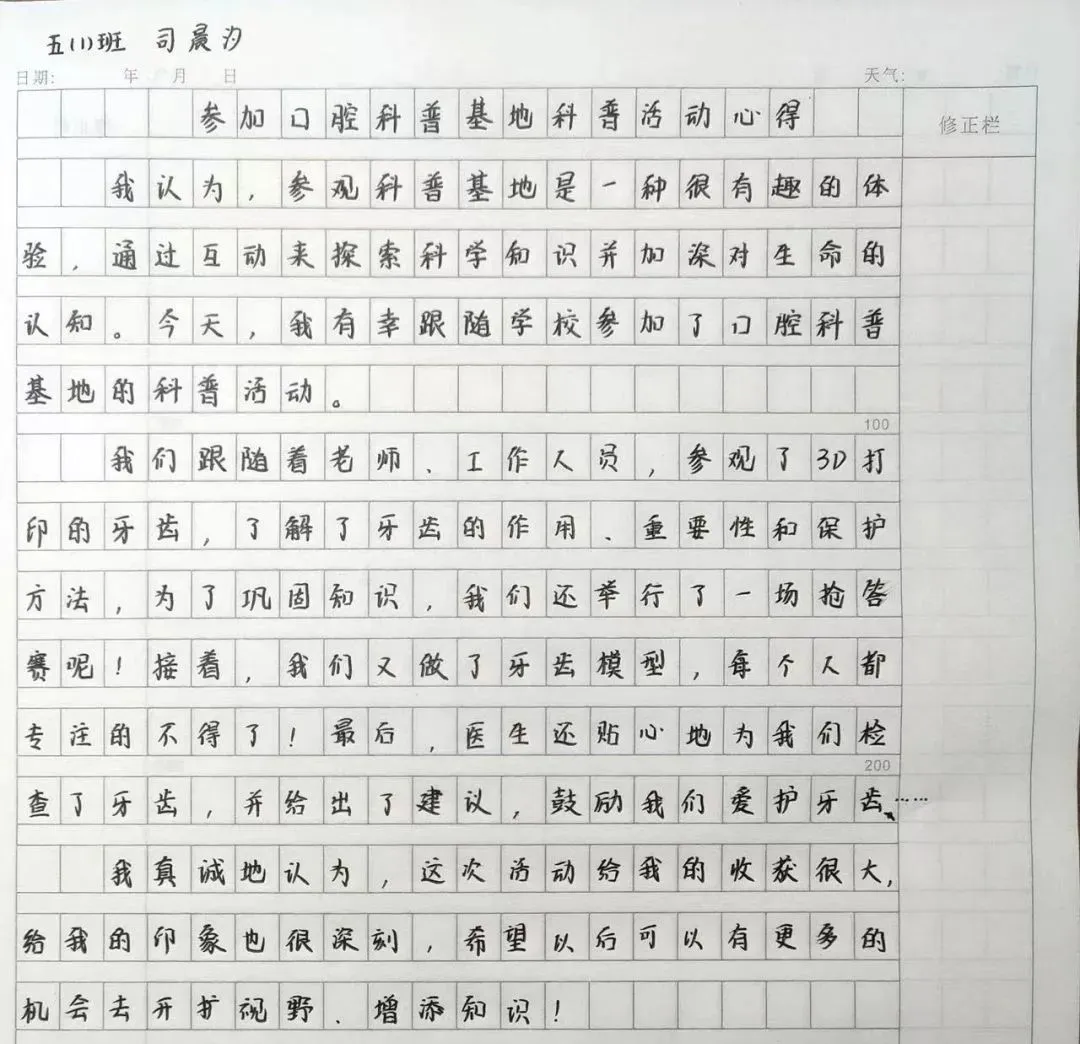 五(1)班 司晨汐
日期: 年 月 日 天气:
参加口腔科普基地科普活动心得
修正栏
我认为，参观科普基地是一种很有趣的体
验，通过互动来探索科学知识并加深对生命的
认知。今天，我有幸跟随学校参加了口腔科普
基地的科普活动。
100
我们跟随着老师、工作人员，参观了3D打
印的牙齿，了解了牙齿的作用、重要性和保护
方法，为了巩固知识，我们还举行了一场抢答
赛呢！接着，我们又做了牙齿模型，每个人都
专注的不得了！最后，医生还贴心地为我们检
200
查了牙齿，并给出了建议，鼓励我们爱护牙齿……
我真诚地认为，这次活动给我的收获很大，
给我的印象也很深刻，希望以后可以有更多的
机会去开扩视野、增添知识！